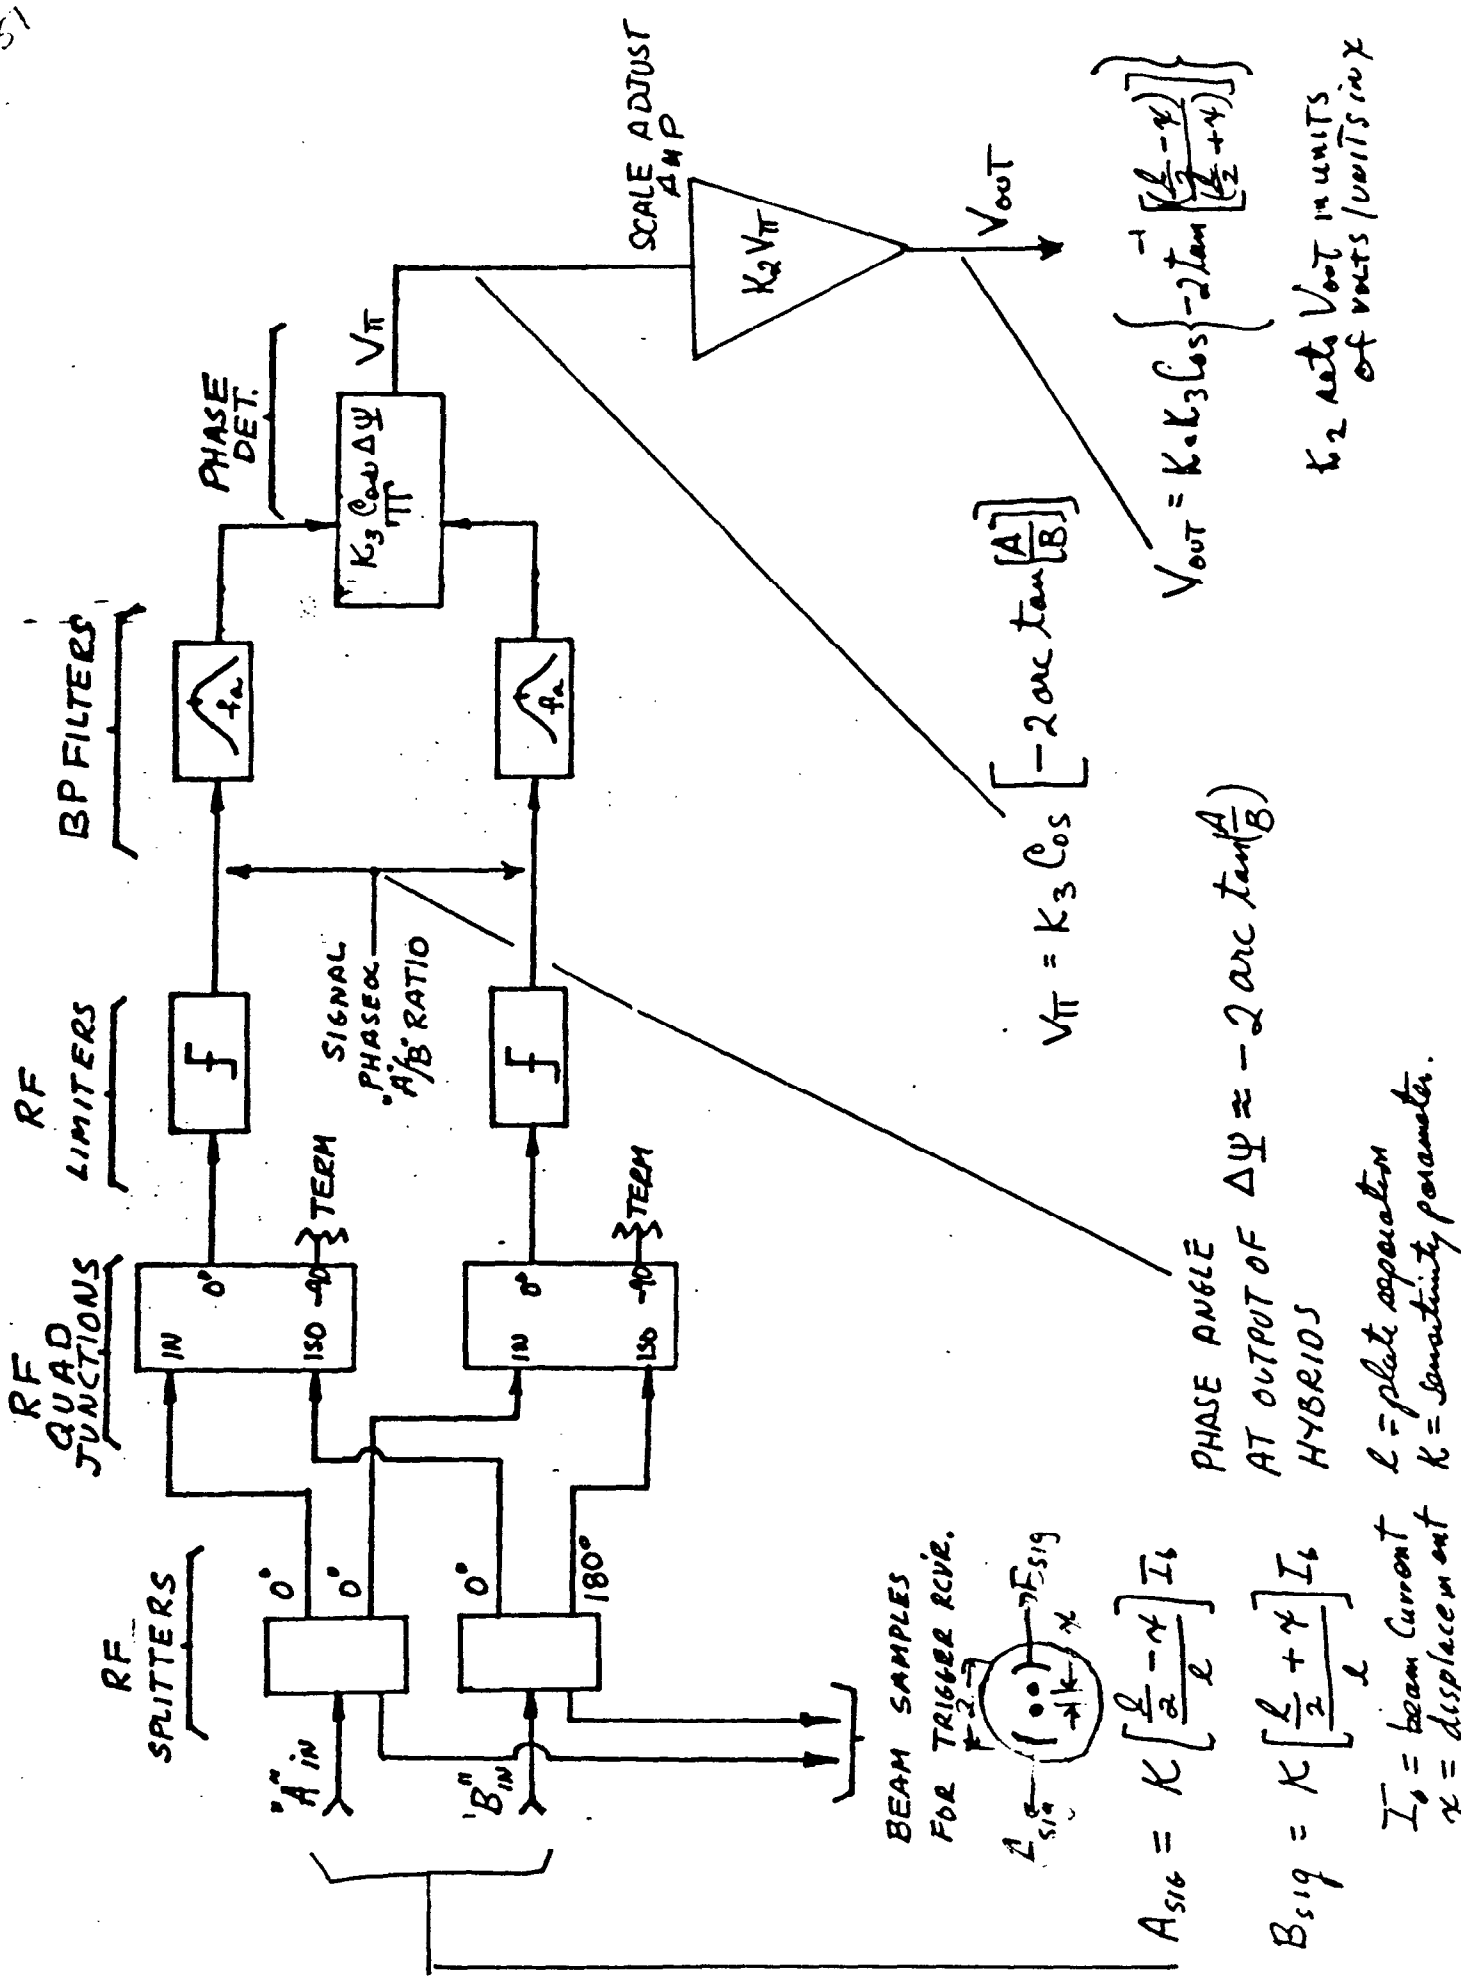 51
RF
SPLITTERS
RF
QUAD
JUNCTIONS
RF
LIMITERS
BP FILTERS
PHASE
DET.
"A" IN
"B" IN
0°
0°
0°
180°
IN
0°
ISO -90
TERM
IN
0°
ISO -90
TERM
SIGNAL
"PHASE α
"A"/"B" RATIO
K3 Cos ΔΨ
π
Vπ
SCALE ADJUST
AMP
K2Vπ
VOUT
BEAM SAMPLES
FOR TRIGGER RCVR.
x
ASIG = K [(l/2 - x)/l] Ib
BSIG = K [(l/2 + x)/l] Ib
Ib = beam Current
x = displacement
l = plate separation
K = sensitivity parameter.
PHASE ANGLE
AT OUTPUT OF ΔΨ ≈ -2 arc tan(A/B)
HYBRIDS
Vπ = K3 Cos [-2 arc tan [A/B]]
VOUT = K2K3 Cos {-2 tan⁻¹ [(l/2 - x)/(l/2 + x)]}
K2 sets VOUT in units
of volts / units in x